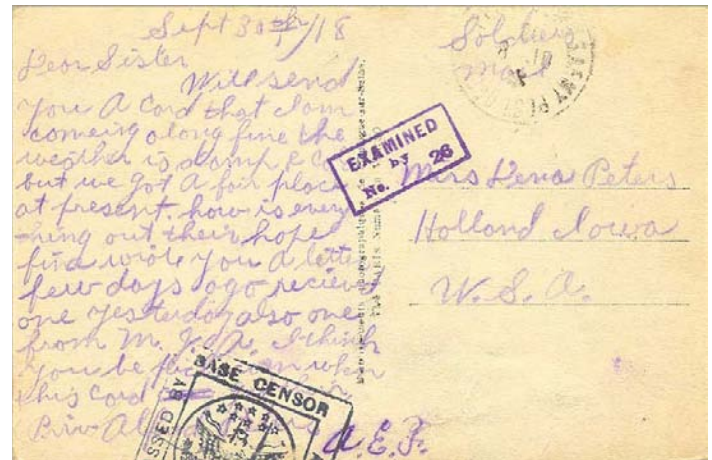 Sept 30th/18
Dear Sister
Will send
you A Card that I am
comeing along fine the
weather is damp &
but we got A fair place
at present, how is every
thing out their hope
fine wrote you A letter
few days ago recieved
one yesterday also one
from M. I think
you be when
this Card
Soldiers
Mail
EXAMINED
by
No. 26
Mrs Lena Peters
Holland Iowa
U. S. A.
PASSED BY
BASE CENSOR
A.E.F.